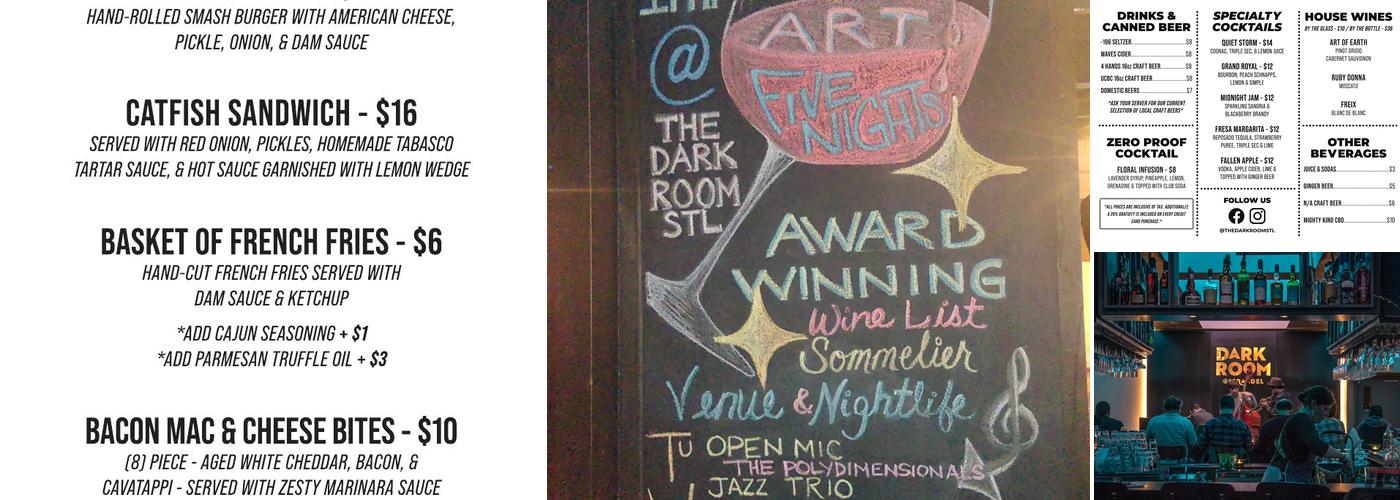 HAND-ROLLED SMASH BURGER WITH AMERICAN CHEESE,
PICKLE, ONION, & DAM SAUCE
CATFISH SANDWICH - $16
SERVED WITH RED ONION, PICKLES, HOMEMADE TABASCO
TARTAR SAUCE, & HOT SAUCE GARNISHED WITH LEMON WEDGE
BASKET OF FRENCH FRIES - $6
HAND-CUT FRENCH FRIES SERVED WITH
DAM SAUCE & KETCHUP
*ADD CAJUN SEASONING + $1
*ADD PARMESAN TRUFFLE OIL + $3
BACON MAC & CHEESE BITES - $10
(8) PIECE - AGED WHITE CHEDDAR, BACON, &
CAVATAPPI - SERVED WITH ZESTY MARINARA SAUCE
@
THE
DARK
ROOM
STL
ART
FIVE
NIGHTS
AWARD
WINNING
Wine List
Sommelier
Venue & Nightlife
TU OPEN MIC
THE POLYDIMENSIONALS
JAZZ TRIO
DRINKS &
CANNED BEER
-196 SELTZER $8
WAVES CIDER $8
4 HANDS 16oz CRAFT BEER $8
UCBC 16oz CRAFT BEER $8
DOMESTIC BEERS $7
*ASK YOUR SERVER FOR OUR CURRENT
SELECTION OF LOCAL CRAFT BEERS*
ZERO PROOF
COCKTAIL
FLORAL INFUSION - $8
LAVENDER SYRUP, PINEAPPLE, LEMON,
GRENADINE & TOPPED WITH CLUB SODA
*ALL PRICES ARE INCLUSIVE OF TAX. ADDITIONALLY,
A 20% GRATUITY IS INCLUDED ON EVERY CREDIT
CARD PURCHASE.*
SPECIALTY
COCKTAILS
QUIET STORM - $14
COGNAC, TRIPLE SEC, & LEMON JUICE
GRAND ROYAL - $12
BOURBON, PEACH SCHNAPPS,
LEMON & SIMPLE
MIDNIGHT JAM - $12
SPARKLING SANGRIA &
BLACKBERRY BRANDY
FRESA MARGARITA - $12
REPOSADO TEQUILA, STRAWBERRY
PUREE, TRIPLE SEC & LIME
FALLEN APPLE - $12
VODKA, APPLE CIDER, LIME &
TOPPED WITH GINGER BEER
FOLLOW US
@THEDARKROOMSTL
HOUSE WINES
BY THE GLASS - $10 / BY THE BOTTLE - $36
ART OF EARTH
PINOT GRIGIO
CABERNET SAUVIGNON
RUBY DONNA
MOSCATO
FREIX
BLANC DE BLANC
OTHER
BEVERAGES
JUICE & SODAS $3
GINGER BEER $5
N/A CRAFT BEER $6
MIGHTY KIND CBD $10
DARK
ROOM